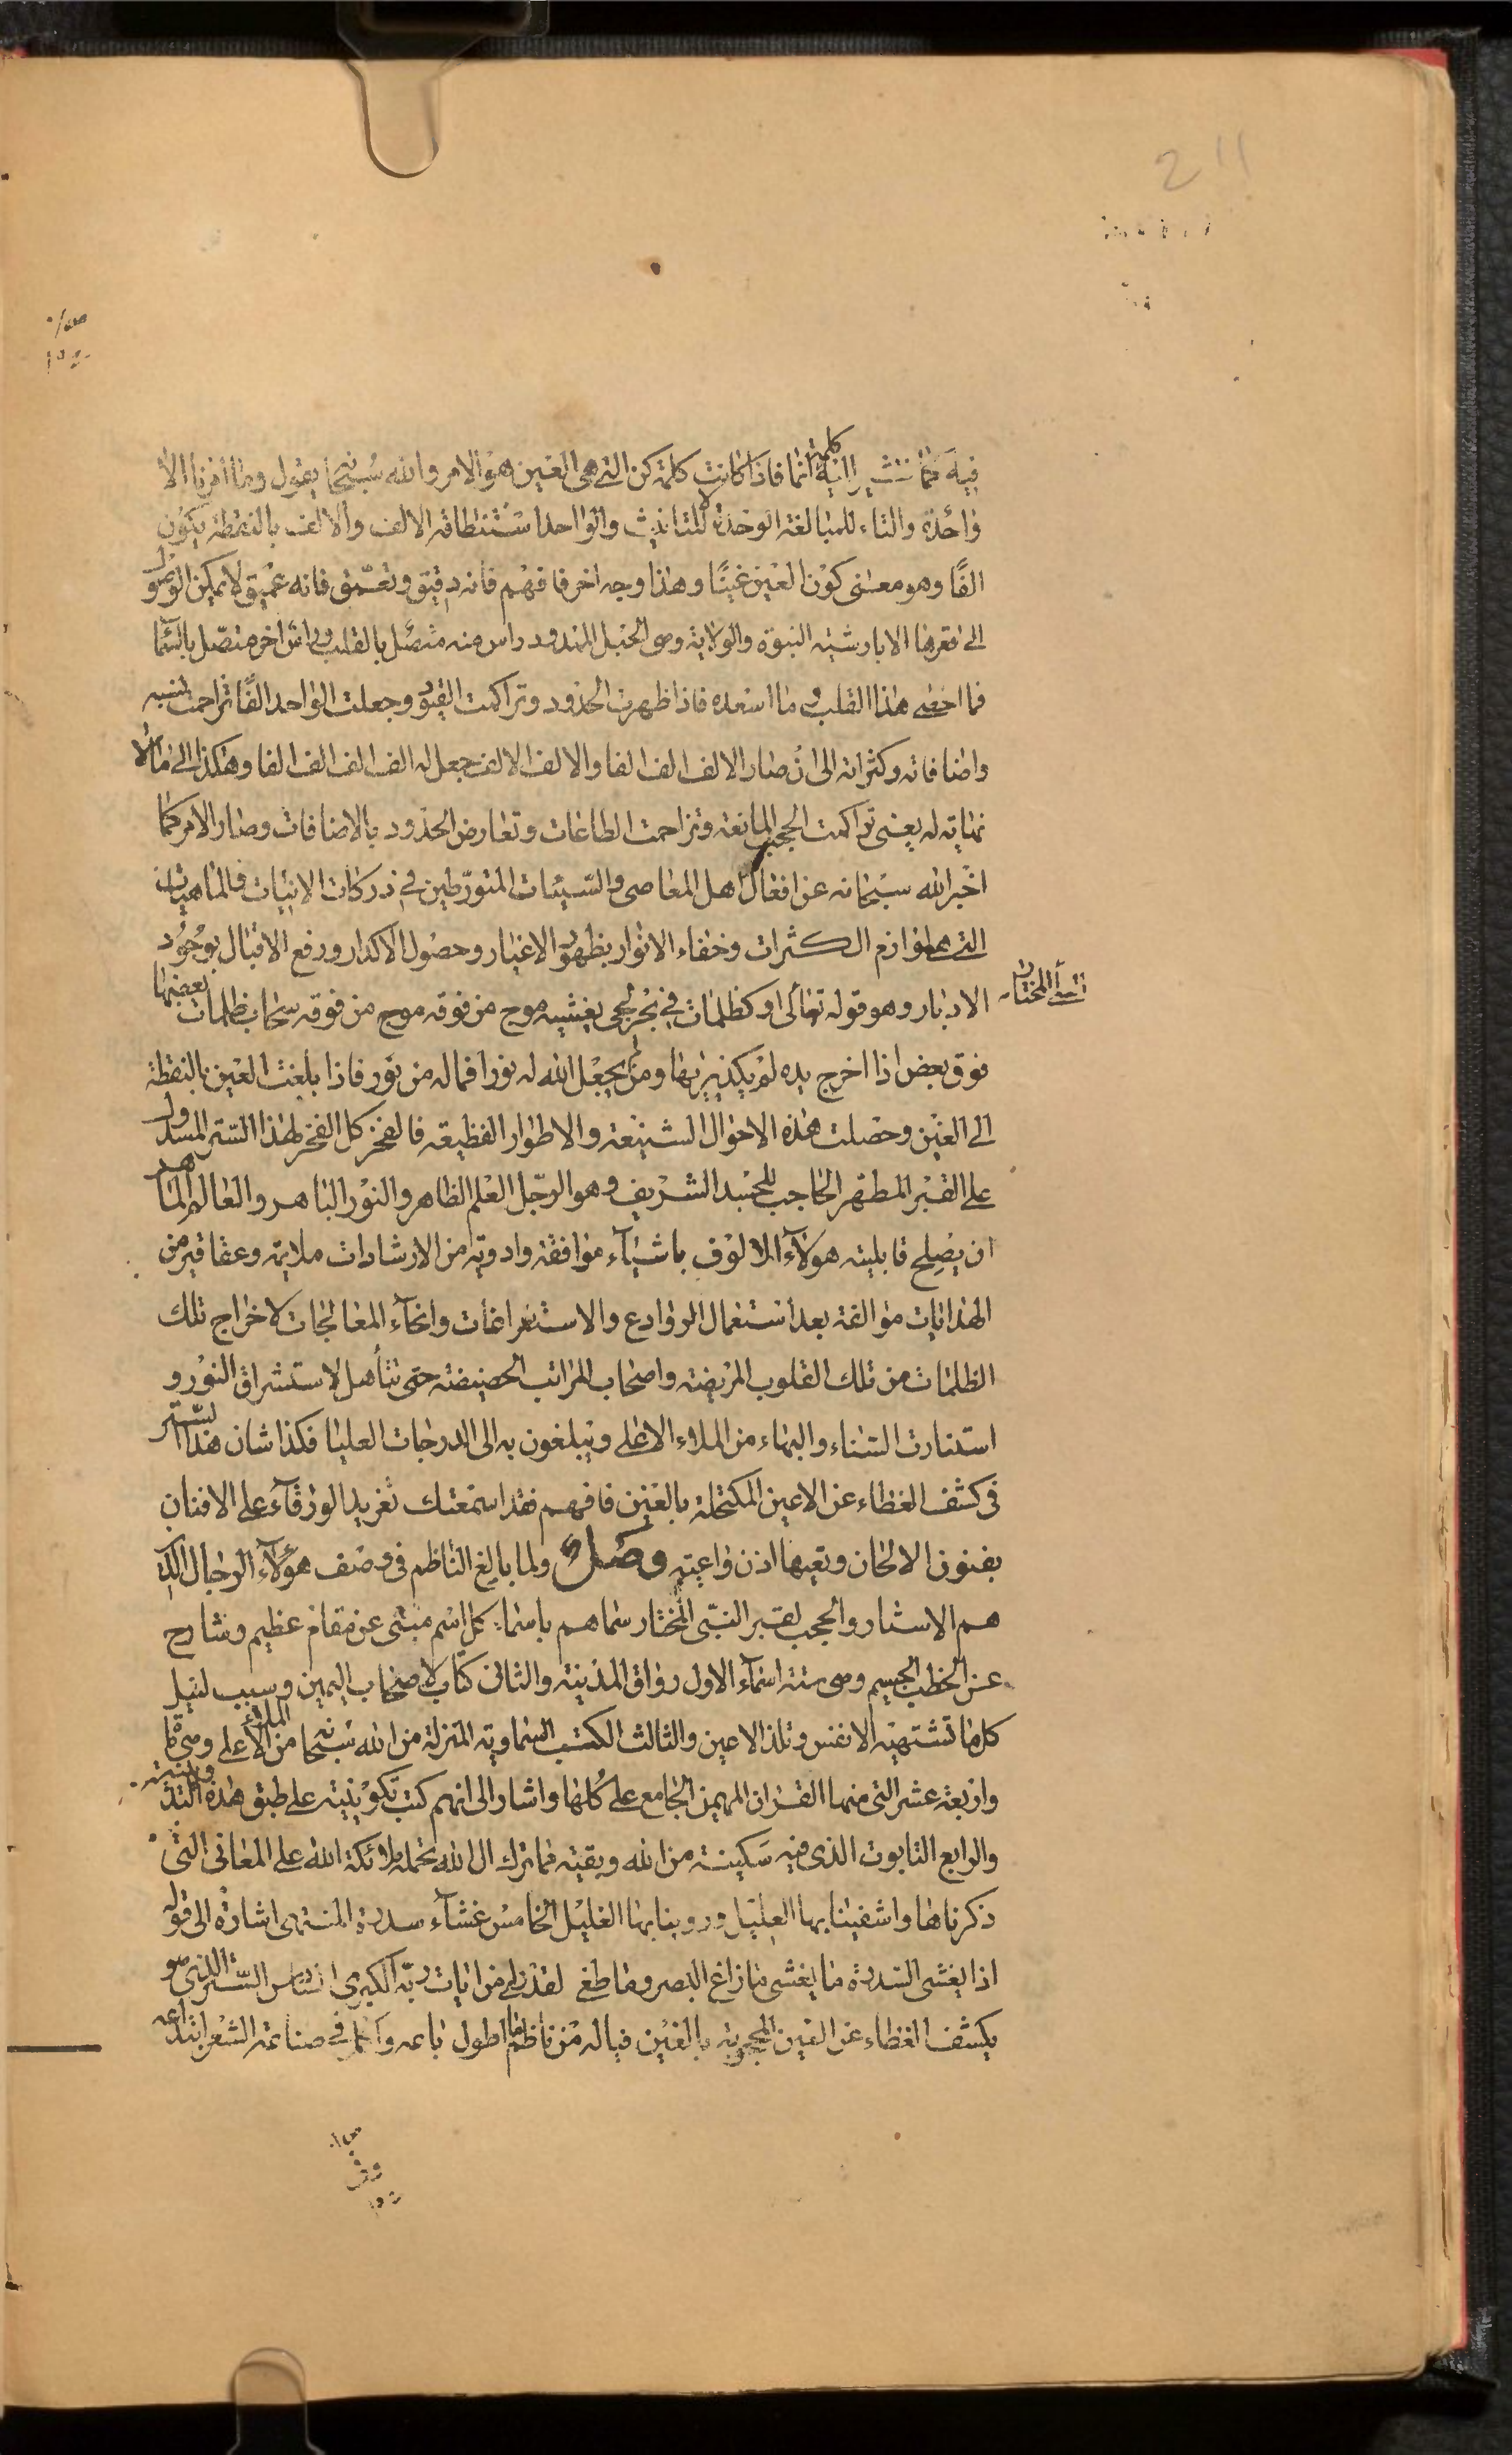 211
فيه مما تشير اليه كلمة انما فاذا كانت كلمة كن التي هي العين هو الامر والله سبحانه يقول وما امرنا الا
واحدة والتاء للمبالغة الوحدة لا للتانيث والواحد استنطاقه الالف والالف بالنقطة يكون
الفًا وهو معنى كون العين غينًا وهذا وجه اخر فافهم فانه دقيق وتعمق فانه عميق لا يمكن الوصول
الى قعرها الا بارشية النبوة والولاية وهي الحبل الممدود راس منه متصل بالقلب وراس اخر متصل بالسماء
فما اخفى هذا القلب وما اسعده فاذا ظهرت الحدود وتراكمت القيود وجعلت الواحد الفًا تزاحمت نسبه
واضافاته وكثراته الى ان صار الالف الف الفا والالف الالف جعل له الف الف الف الفا وهكذا الى ما لا
نهاية له يعنى تراكمت الحجب المانعة وتزاحمت الطاغات وتعارض الحدود بالاضافات وصار الامر كما
اخبر الله سبحانه عن افعال اهل المعاصى والسيئات المتورطين في دركات الانيات والماهيات
التي هي لوازم الكثرات وخفاء الانوار بظهور الاغيار وحصول الاكدار ورفع الاقبال بوجود
الادبار وهو قوله تعالى او كظلمات في بحر لجي يغشيه موج من فوقه موج من فوقه سحاب ظلمات بعضها
فوق بعض اذا اخرج يده لم يكد يريها ومن لم يجعل الله له نورا فما له من نور فاذا بلغت العين بالنقطة
الى الغين وحصلت هذه الاحوال الشنيعة والاطوار الفظيعة فالفخر كل الفخر لهذا الستر المسدول
على القبر المطهر الحاجب للجسد الشريف وهو الرجل العلم الظاهر والنور الباهر والعالم الماهر
ان يصلح قابلية هؤلاء الالوف باشياء موافقة وادوية من الارشادات ملايمة وعقاقير من
الهدايات موالفة بعد استعمال الروادع والاستفراغات وانحاء المعالجات لاخراج تلك
الظلمات من تلك القلوب المريضة واصحاب المراتب الحضيضة حتى تتأهل لاستشراق النور و
استنارت السناء والبهاء من الملاء الاعلى ويبلغون به الى الدرجات العليا فكذا شان هذا الستر
في كشف الغطاء عن الاعين المكتحلة بالغين فافهم فقد اسمعتك تغريد الورقاء على الافنان
بفنون الالحان وتعيها اذن واعية وصل ولما بالغ الناظم في وصف هؤلاء الرجال الذين
هم الاستار والحجب لقبر النبي المختار سماهم باسماء كل اسم منبئ عن مقام عظيم وشارح
عن الخطب الجسيم وهي ستة اسماء الاول رواق المدينة والثاني كتاب لاصحاب اليمين وسبب لنيل
كل ما تشتهيه الانفس وتلذ الاعين والثالث الكتب السماوية المنزلة من الله سبحانه من الملاء الاعلى وهي مائة
واربعة عشر التي منها القران المهيمن الجامع على كلها واشار الى انهم كتب تكوينية على طبق هذه التدوينية
والرابع التابوت الذى فيه سكينة من الله وبقية مما ترك ال الله تحمله ملائكة الله على المعانى التي
ذكرناها واشفينا بها العليل وروينا بها الغليل الخامس غشاء سدرة المنتهى اشارة الى قوله
اذ يغشى السدرة ما يغشى ما زاغ البصر وما طغى لقد راى من ايات ربه الكبرى السادس الستر الذى هو
يكشف الغطاء عن العين المحجوبة بالغين فياله من ناظم ما اطول باعه وا في صناعة الشعر ابتداعه